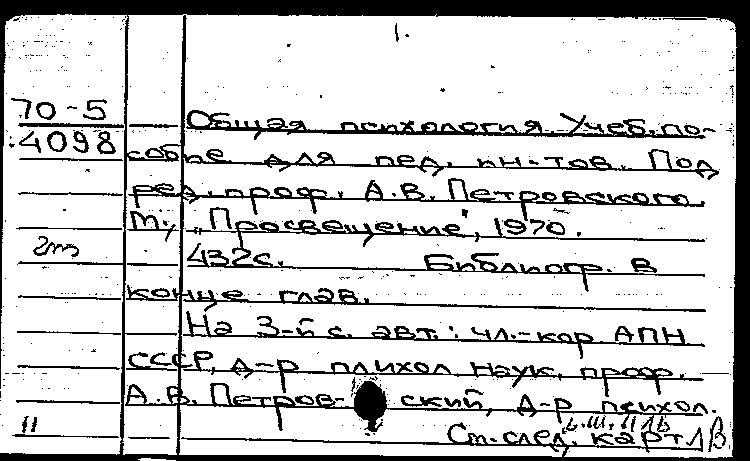 1.
70-5
4098
Общая психология. Учеб. по-
собие для пед. ин-тов. Под
ред. проф. А.В. Петровского.
М., „Просвещение", 1970.
2т
432с. Библиогр. в
конце глав.
На 3-й с. авт.: чл.-кор. АПН
СССР, д-р плихол. наук, проф.
А.В. Петров- ский, д-р психол.
11
См. след. карт. 1В